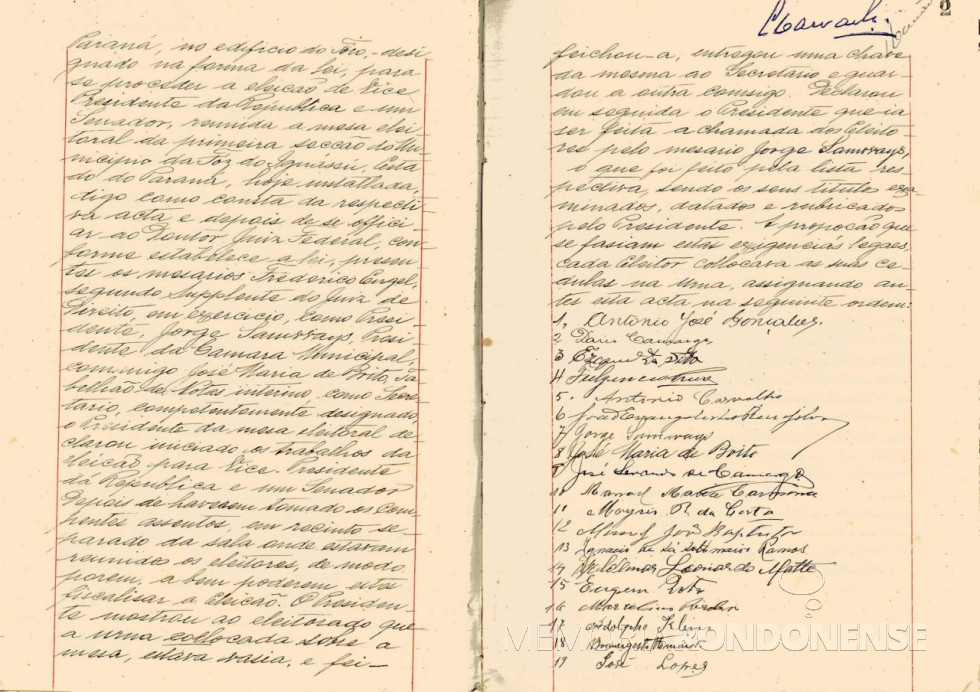 Paraná, no edificio do Fôro, desi-
gnado na forma da lei, para
se proceder a eleicão de Vice
Presidente da Republica e um
Senador, reunida a mesa elei-
toral da primeira seccão do Mu-
nicipio da Foz do Iguassú, Esta-
do do Paraná, hoje installada,
digo como consta da respecti-
va acta e depois de se offici-
ar ao Doutor Juiz Federal, con-
forme estabelece a lei, presen-
tes os mesarios Frederico Engel,
segundo Supplente do Juiz de
Direito, em exercicio, como Presi-
dente, Jorge Samways, Presi-
dente da Camara Municipal,
commigo José Maria de Brito, Ta-
bellião de Notas interino, como Secre-
tario, competentemente designado,
o Presidente da mesa eleitoral de-
clarou iniciado os trabalhos da
eleicão para Vice-Presidente
da Republica e um Senador
Depois de haverem tomado os com-
petentes assentos, em recinto se-
parado da sala onde estavam
reunido os eleitores, de modo
porem, a bem poderem
fiscalisar a eleicão. O Presiden-
te mostrou ao eleitorado que
a urna collocada sobre a
mesa, estava vasia, e fei-
2
feichou-a, entregou uma chave
da mesma ao Secretario e guar-
dou a outra comsigo. Declarou
em seguida o Presidente que ia
ser feita a chamada dos Eleito-
res pelo mesario Jorge Samways,
o que foi feito pela lista res-
pectiva, sendo os seus titulos exa-
minados, datados e rubricados
pelo Presidente. A propocão que
se fasiam estas exigencias legaes,
cada Eleitor collocava as suas ce-
dulas na urna, assignando an-
tes esta acta na seguinte ordem:
1, Antonio José Goncalves.
2 Dario Camargo
3
4 Fulgencio
5. Antonio Carvalho
6 João Evangelista
7 Jorge Samways
8 José Maria de Brito
9 José de Camargo
10 Manoel Maria
11 Moysés R. da Costa
12 João Baptista
13 Ignacio de Sá Sottomaior Ramos
14 Waldemar Leonardo Matte
15 Eugem
16 Marcelino
17 Adolpho
18
19 José Lopes
MEMÓRIA RONDONENSE